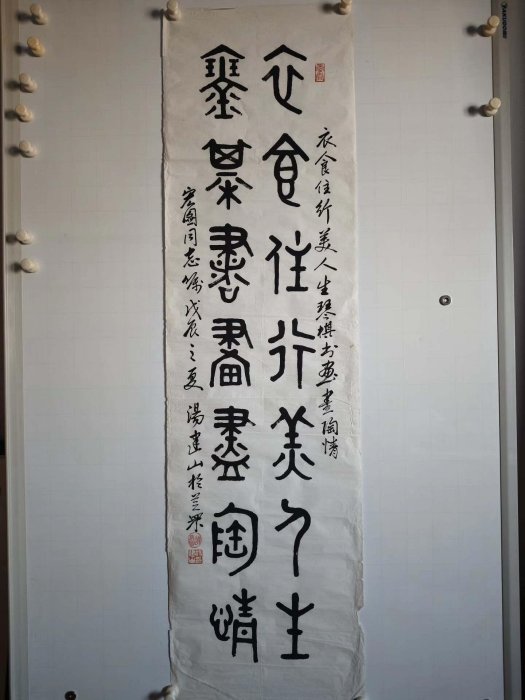 衣食住行美人生琴棋书画尽陶情
衣食住行美人生
琴棊書畫盡陶情
宏图同志嘱 戊辰之夏 湯建山於兰